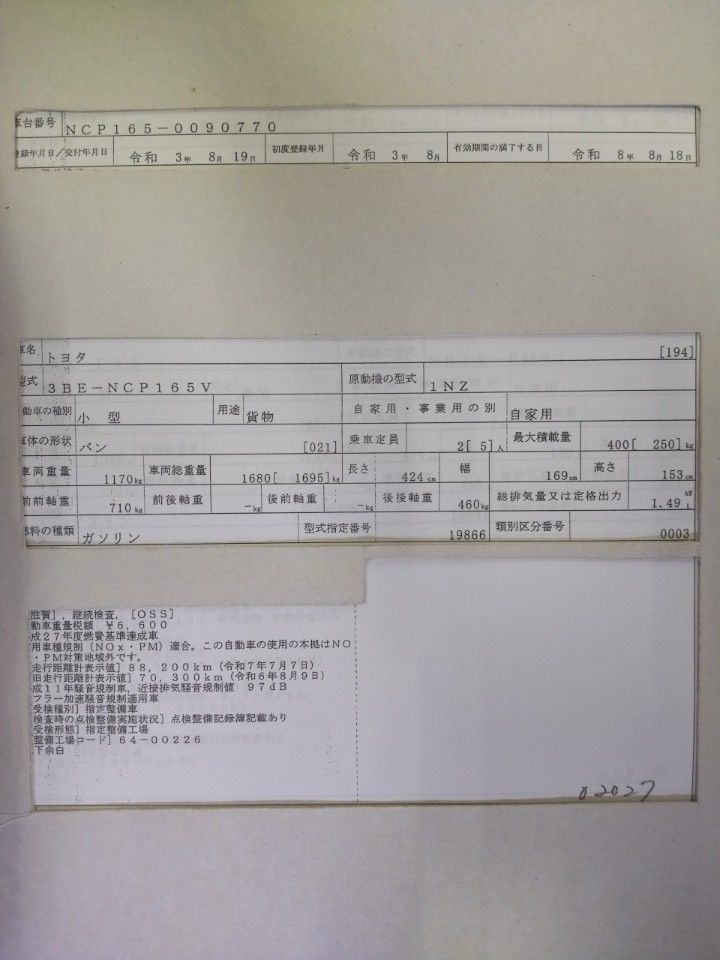 車台番号 NCP165-0090770
登録年月日/交付年月日 令和 3年 8月 19日 初度登録年月 令和 3年 8月 有効期間の満了する日 令和 8年 8月 18日
車名 トヨタ [194]
型式 3BE-NCP165V 原動機の型式 1NZ
動車の種別 小 型 用途 貨物 自家用・事業用の別 自家用
車体の形状 バン [021] 乗車定員 2[ 5]人 最大積載量 400[ 250]kg
車両重量 1170kg 車両総重量 1680[ 1695]kg 長さ 424cm 幅 169cm 高さ 153cm
前前軸重 710kg 前後軸重 -kg 後前軸重 -kg 後後軸重 460kg 総排気量又は定格出力 1.49 kW L
燃料の種類 ガソリン 型式指定番号 19866 類別区分番号 0003
滋賀],継続検査,[OSS]
動車重量税額 ¥6,600
成27年度燃費基準達成車
用車種規制(NOx・PM)適合。この自動車の使用の本拠はNO
・PM対策地域外です。
走行距離計表示値]88,200km(令和7年7月7日)
旧走行距離計表示値]70,300km(令和6年8月9日)
成11年騒音規制車,近接排気騒音規制値 97dB
フラー加速騒音規制適用車
受検種別]指定整備車
検査時の点検整備実施状況]点検整備記録簿記載あり
受検形態]指定整備工場
整備工場コード]64-00226
下余白
02027